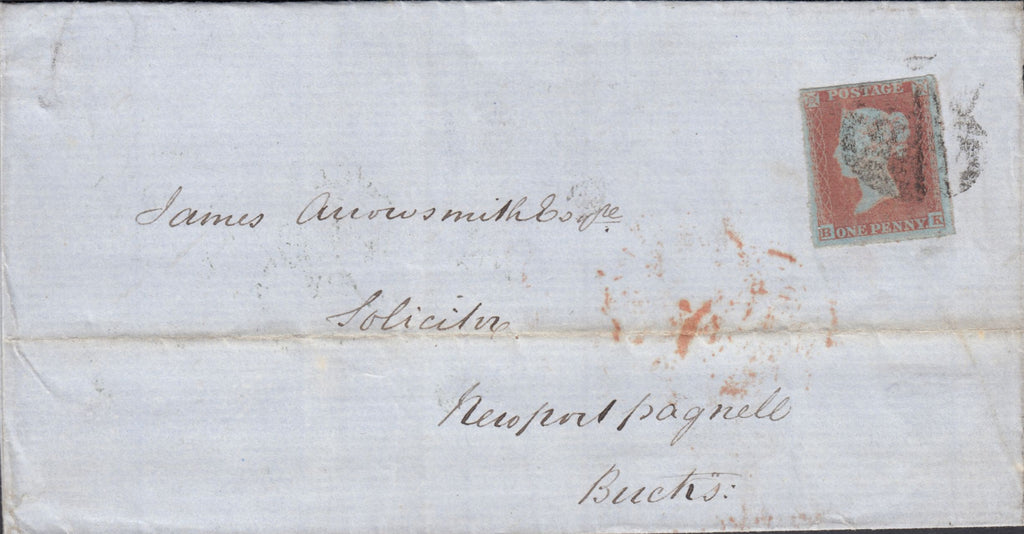 POSTAGE
B ONE PENNY K
James Arrowsmith Esqre
Solicitor
Newport pagnell
Bucks: